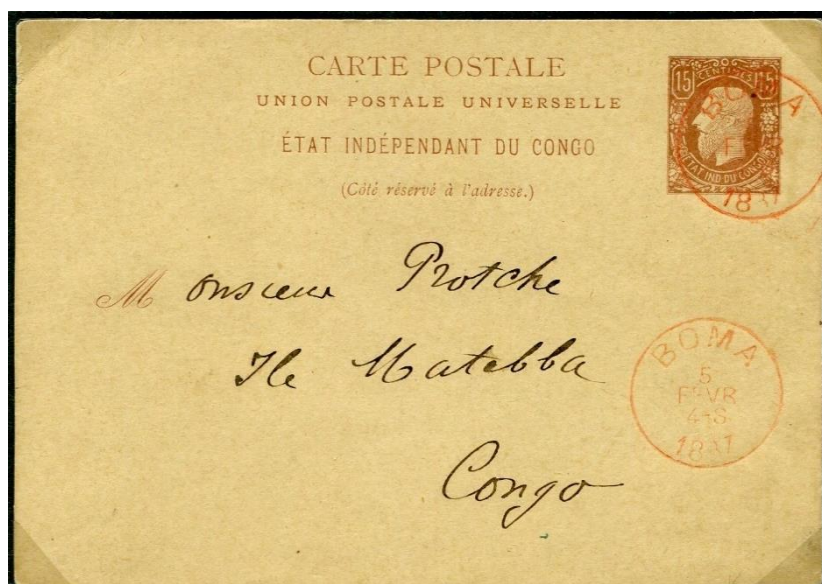 CARTE POSTALE
UNION POSTALE UNIVERSELLE
ÉTAT INDÉPENDANT DU CONGO
(Côté réservé à l'adresse.)
15 CENTIMES 15
ÉTAT IND DU CONGO
BOMA
Monsieur Protche
Ile Matebba
Congo
BOMA
5
FEVR
4-S